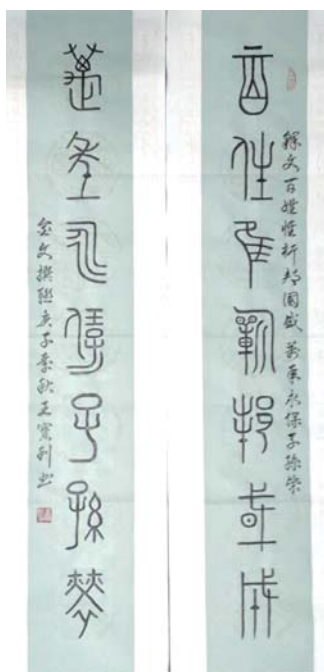 百姓惟祈邦國盛
釋文百姓惟祈邦國盛 萬年永保子孫榮
萬年永保子孫榮
金文撰聯庚子季秋王寶利書